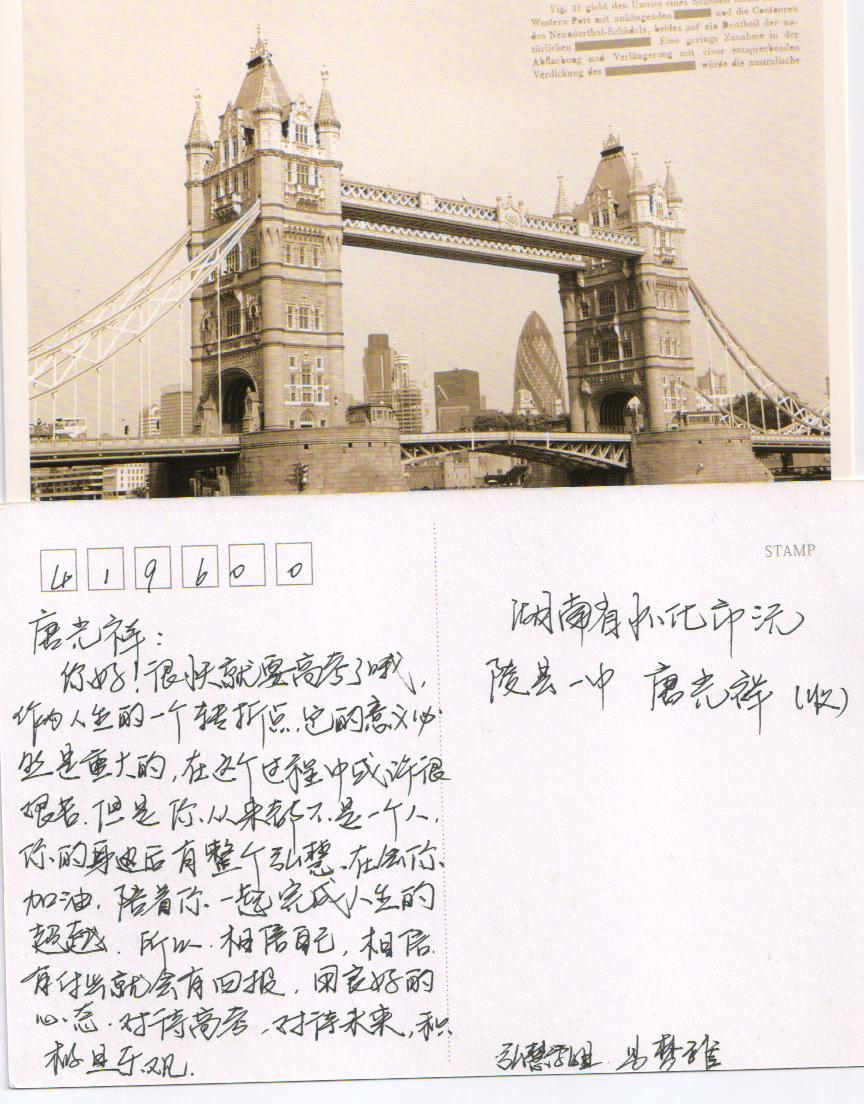 Fig. 31 giebt den Umriss eines Schädels
Western Port mit anhängenden und die Contouren
des Neanderthal-Schädels, beides auf ein Drittheil der na-
türlichen Eine geringe Zunahme in der
Abflachung und Verlängerung mit einer entsprechenden
Verdickung des würde die australische
STAMP
419600
唐光祥:
你好!很快就要高考了哦,
作为人生的一个转折点,它的意义必
然是重大的,在这个过程中或许很
艰苦,但是你从来都不是一个人,
你的身边后有整个弘慧在给你
加油,陪着你一起完成人生的
超越.所以相信自己,相信
有付出就会有回报,用良好的
心态对待高考,对待未来,积
极且乐观.
湖南省怀化市沅
陵县一中 唐光祥(收)
弘慧学姐 马梦雅